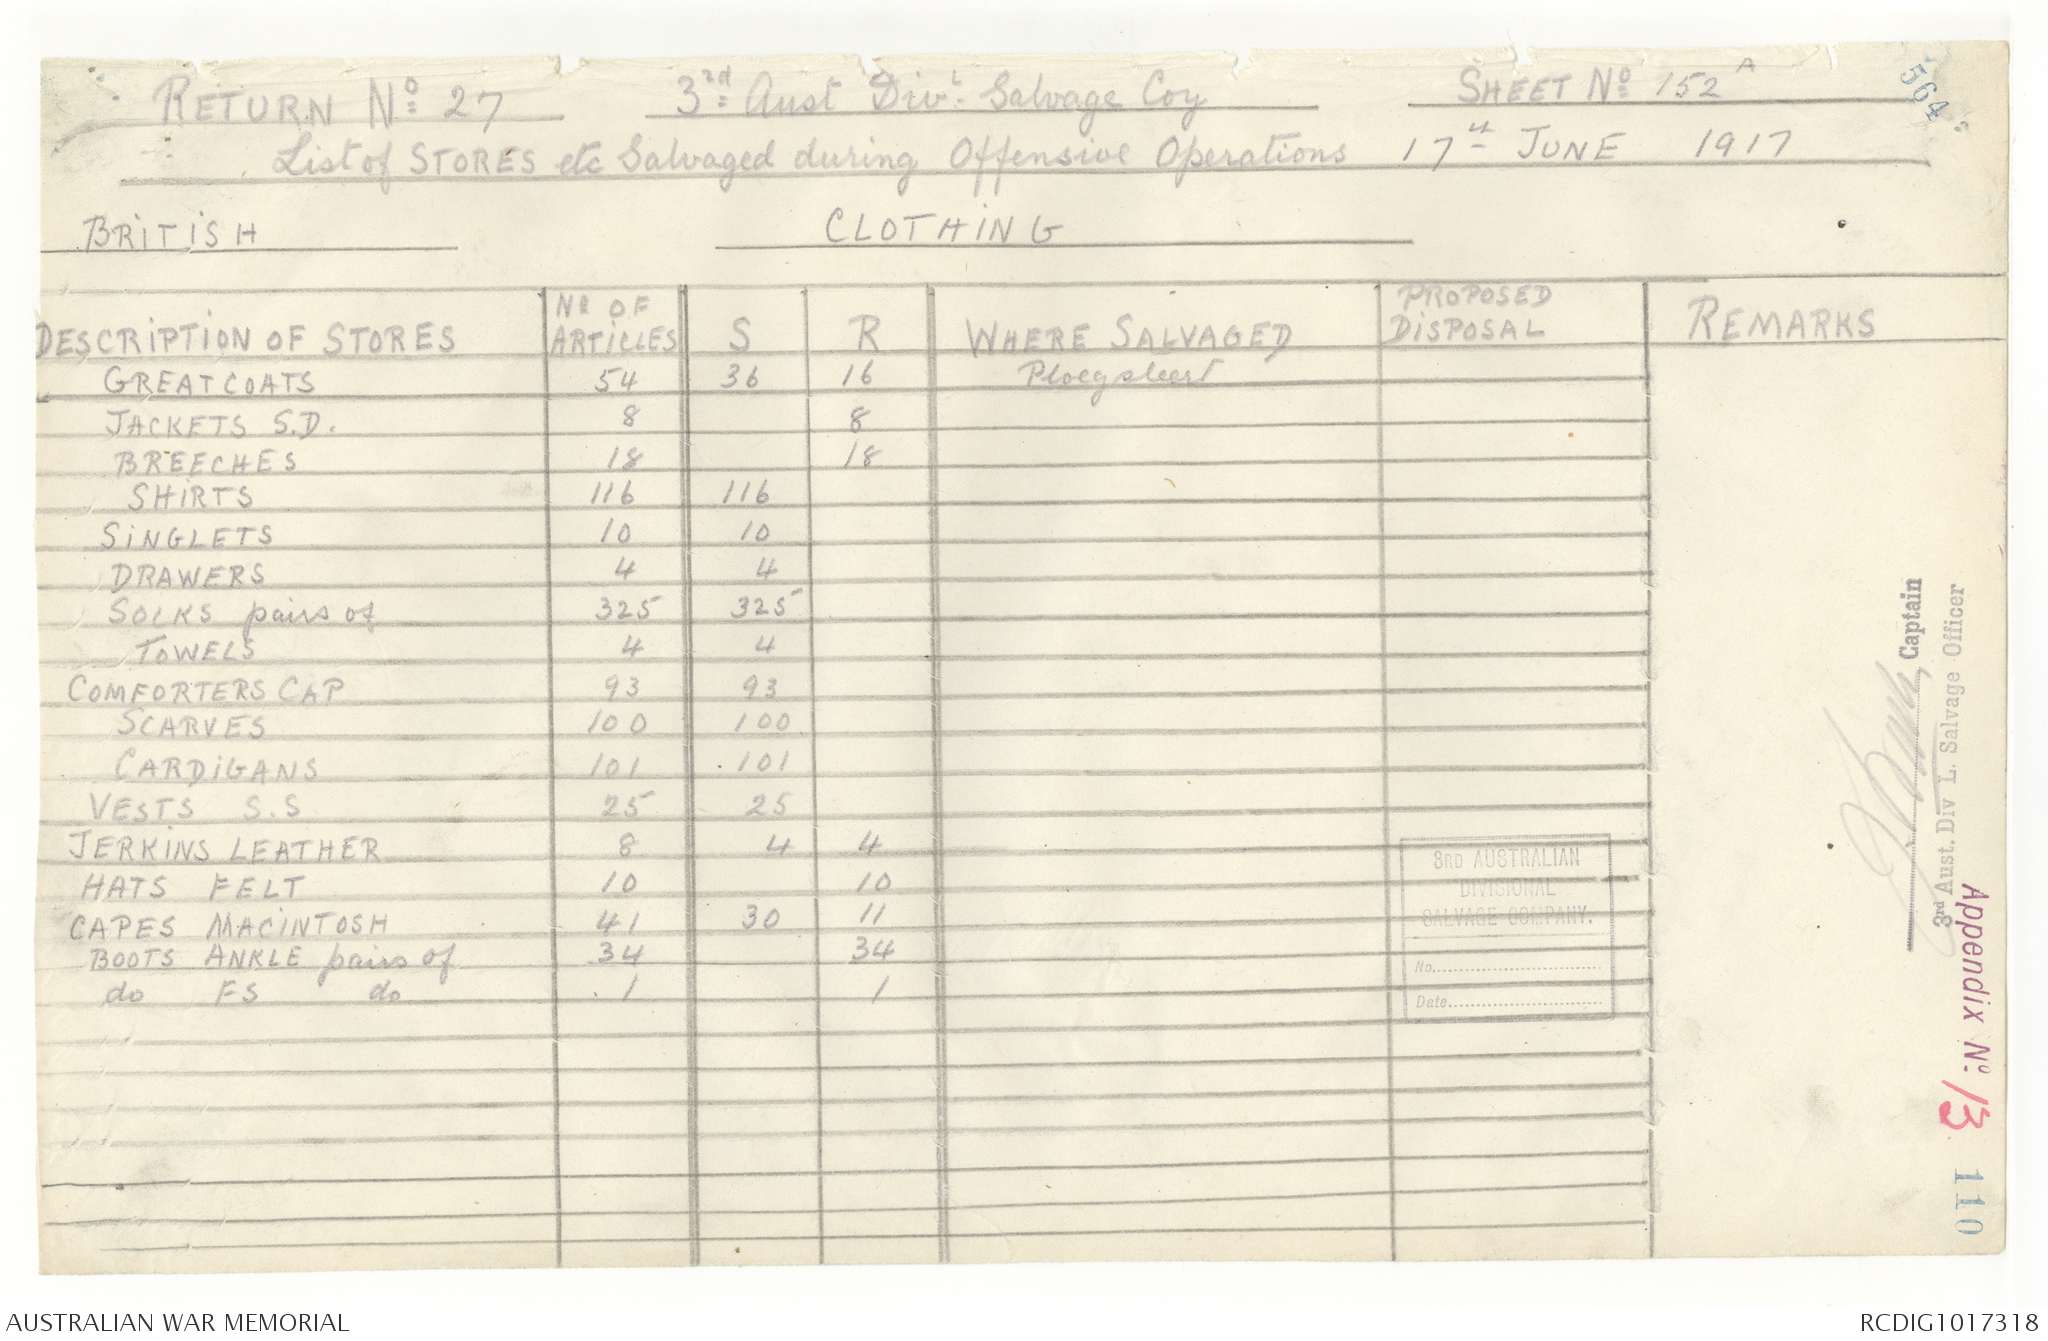 RETURN No 27 3rd Aust Divl Salvage Coy SHEET No 152 A
564
List of STORES etc Salvaged during Offensive Operations 17th JUNE 1917
BRITISH CLOTHING
DESCRIPTION OF STORES No OF ARTICLES S R WHERE SALVAGED PROPOSED DISPOSAL REMARKS
GREATCOATS 54 36 16 Ploegsteert
JACKETS S.D. 8 8
BREECHES 18 18
SHIRTS 116 116
SINGLETS 10 10
DRAWERS 4 4
SOCKS pairs of 325 325
TOWELS 4 4
COMFORTERS CAP 93 93
SCARVES 100 100
CARDIGANS 101 101
VESTS S.S 25 25
JERKINS LEATHER 8 4 4
HATS FELT 10 10
CAPES MACINTOSH 41 30 11
BOOTS ANKLE pairs of 34 34
do FS do 1 1
3RD AUSTRALIAN
DIVISIONAL
SALVAGE COMPANY.
No.
Date
Captain
3rd Aust. Div L. Salvage Officer
Appendix No. 13
110
AUSTRALIAN WAR MEMORIAL RCDIG1017318